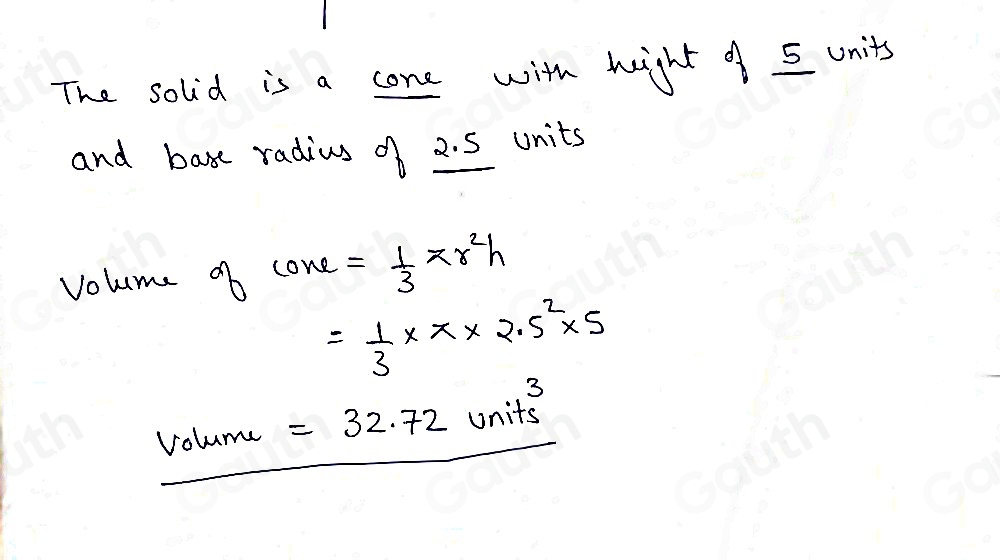 The solid is a cone with height of 5 units
and base radius of 2.5 units
Volume of cone = 1/3 πr²h
= 1/3 × π × 2.5² × 5
Volume = 32.72 units³